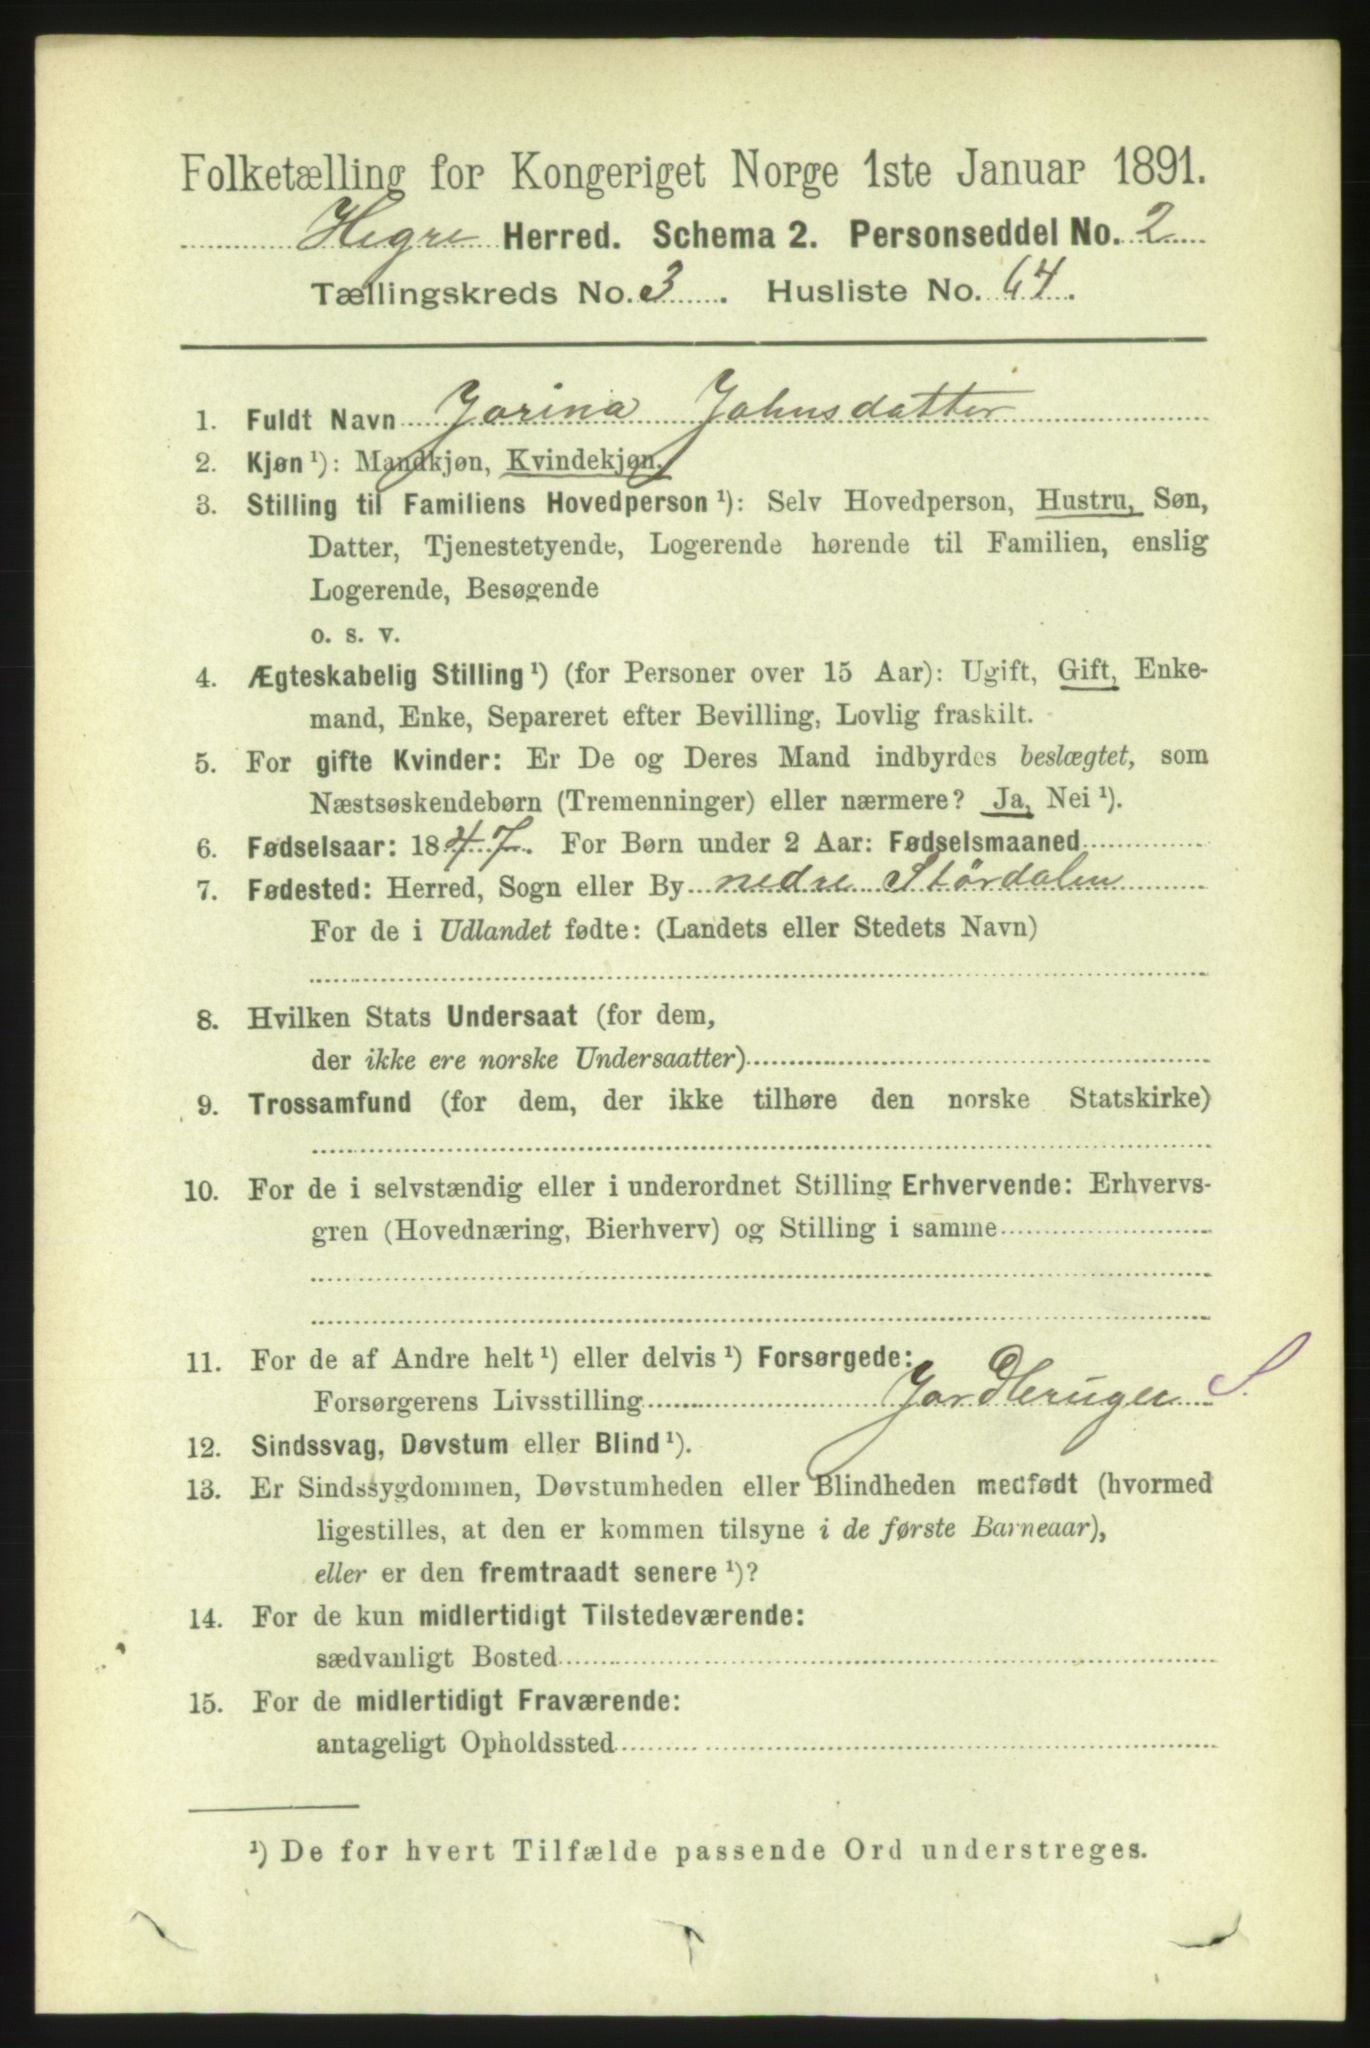 Folketælling for Kongeriget Norge 1ste Januar 1891.
Hegre Herred. Schema 2. Personseddel No. 2
Tællingskreds No. 3. Husliste No. 64.
1. Fuldt Navn Jorina Johnsdatter
2. Kjøn ¹): Mandkjøn, Kvindekjøn.
3. Stilling til Familiens Hovedperson ¹): Selv Hovedperson, Hustru, Søn,
Datter, Tjenestetyende, Logerende hørende til Familien, enslig
Logerende, Besøgende
o. s. v.
4. Ægteskabelig Stilling ¹) (for Personer over 15 Aar): Ugift, Gift, Enke-
mand, Enke, Separeret efter Bevilling, Lovlig fraskilt.
5. For gifte Kvinder: Er De og Deres Mand indbyrdes beslægtet, som
Næstsøskendebørn (Tremenninger) eller nærmere? Ja, Nei ¹).
6. Fødselsaar: 1847. For Børn under 2 Aar: Fødselsmaaned
7. Fødested: Herred, Sogn eller By nedre Stördalen
For de i Udlandet fødte: (Landets eller Stedets Navn)
8. Hvilken Stats Undersaat (for dem,
der ikke ere norske Undersaatter)
9. Trossamfund (for dem, der ikke tilhøre den norske Statskirke)
10. For de i selvstændig eller i underordnet Stilling Erhvervende: Erhvervs-
gren (Hovednæring, Bierhverv) og Stilling i samme
11. For de af Andre helt ¹) eller delvis ¹) Forsørgede:
Forsørgerens Livsstilling Jordbruger S.
12. Sindssvag, Døvstum eller Blind ¹).
13. Er Sindssygdommen, Døvstumheden eller Blindheden medfødt (hvormed
ligestilles, at den er kommen tilsyne i de første Barneaar),
eller er den fremtraadt senere ¹)?
14. For de kun midlertidigt Tilstedeværende:
sædvanligt Bosted
15. For de midlertidigt Fraværende:
antageligt Opholdssted
¹) De for hvert Tilfælde passende Ord understreges.